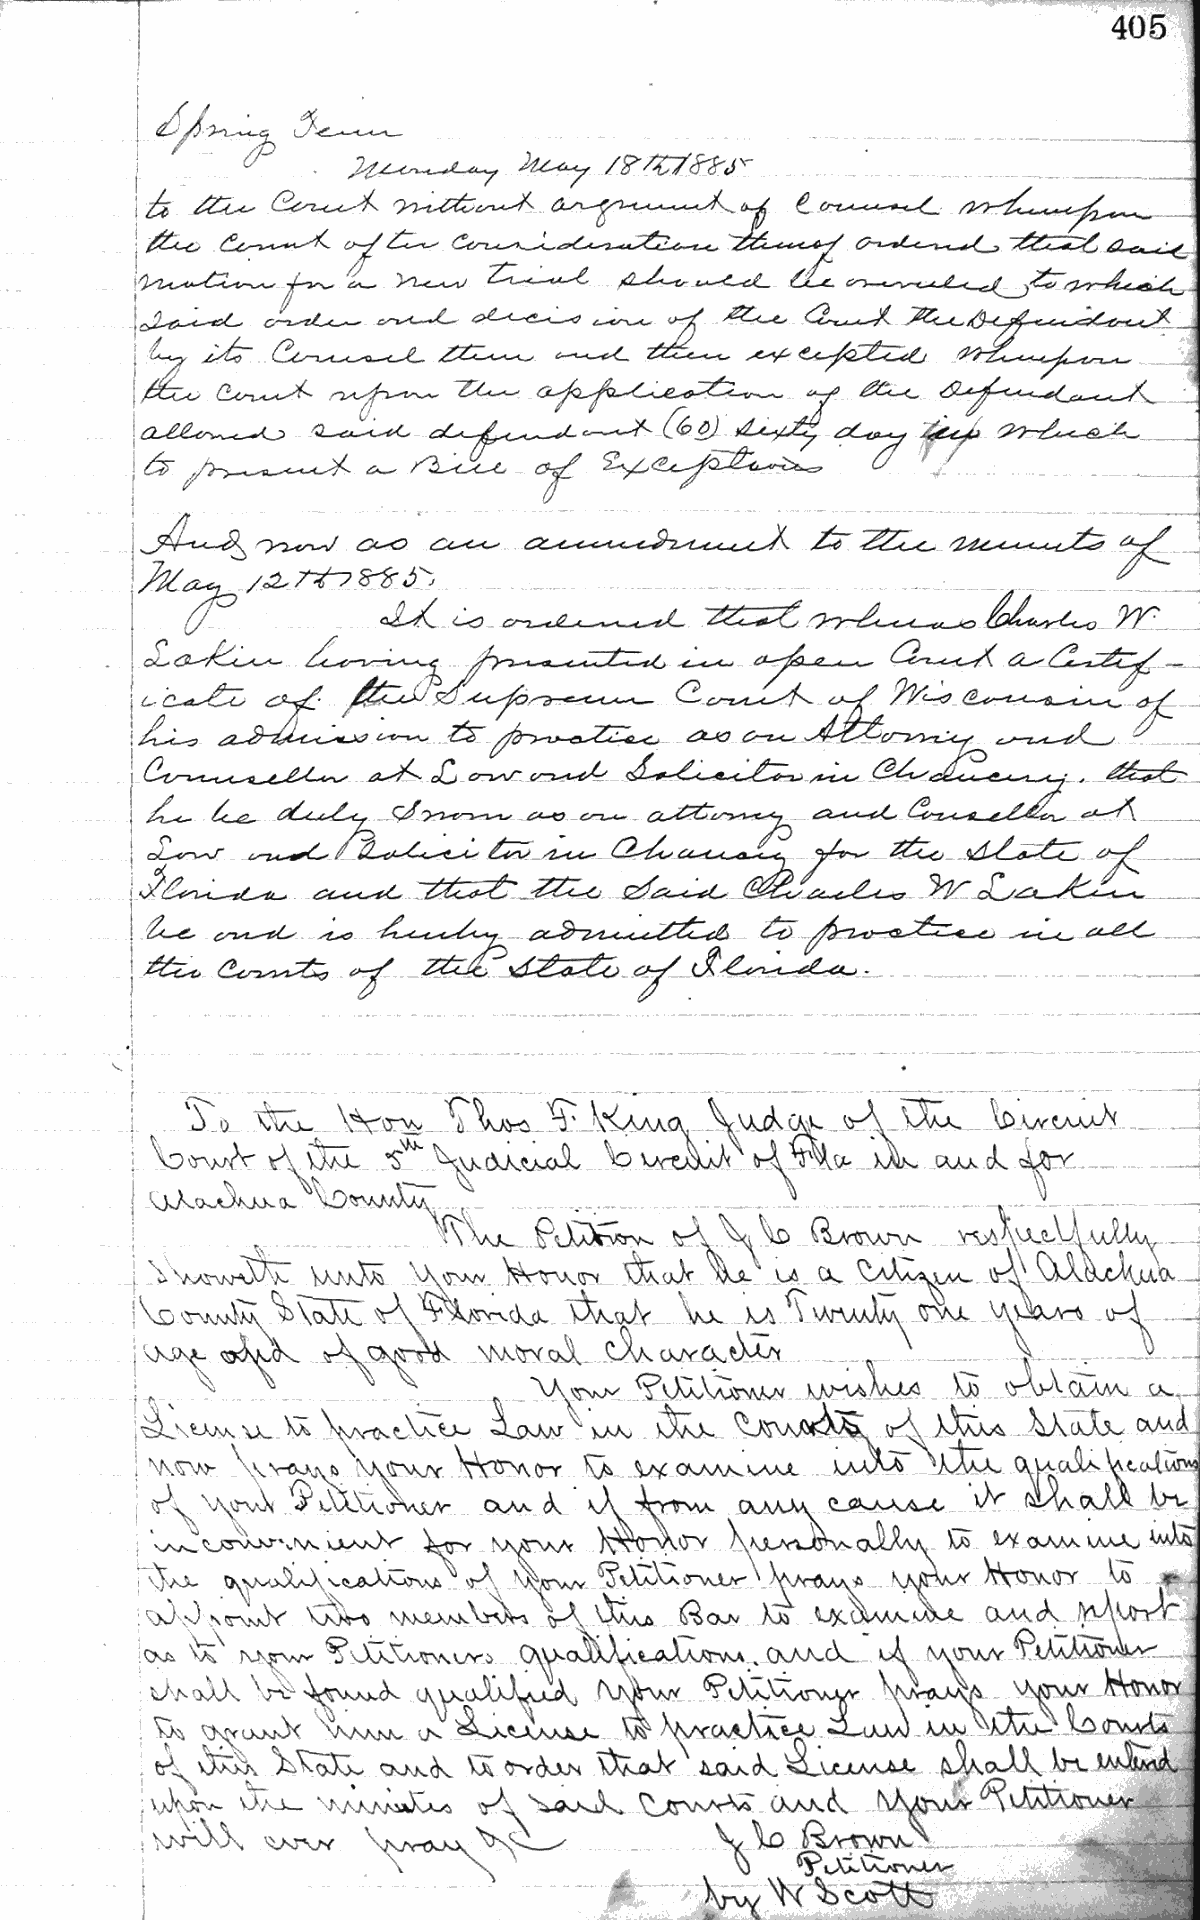 405
Spring Term
Monday May 18th 1885
to the Court without argument of Counsel whereupon
the Court after consideration thereof ordered that said
motion for a new trial should be overruled to which
said order and decision of the Court the Defendant
by its Counsel then and there excepted whereupon
the Court upon the application of the Defendant
allowed said defendant (60) sixty day in which
to present a Bill of Exceptions
And now as an ammendment to the minuts of
May 12th 1885.
It is ordered that whereas Charles W.
Lakin having presented in open Court a Certif-
icate of the Supreme Court of Wisconsin of
his admission to practice as an Attorney and
Counsellor at Law and Solicitor in Chancery. that
he be duly Sworn as an attorney and Counsellor at
Law and Solicitor in Chancery for the State of
Florida and that the Said Charles W Lakin
be and is hereby admitted to practice in all
the Courts of the State of Florida.
To the Hon Thos F. King Judge of the Circuit
Court of the 5th Judicial Circuit of Fla in and for
Alachua County
The Petition of J C Brown respectfully
Showeth unto your Honor that he is a Citizen of Alachua
County State of Florida that he is Twenty one years of
age and of good moral character
Your Petitioner wishes to obtain a
License to practice Law in the Courts of this State and
now prays your Honor to examine into the qualifications
of your Petitioner and if from any cause it shall be
inconvenient for your Honor personally to examine into
the qualifications of your Petitioner prays your Honor to
appoint two members of this Bar to examine and report
as to your Petitioners qualifications. and if your Petitioner
shall be found qualified your Petitioner prays your Honor
to grant him a License to practice Law in the Courts
of this State and to order that said License shall be entered
upon the minutes of said Courts and your Petitioner
will ever pray &c
J C Brown
Petitioner
by W Scott